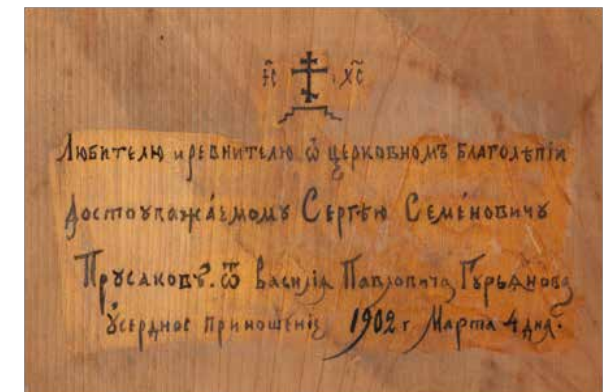 І҃С ХС҃
Любителю и ревнителю ѿ церковномъ благолѣпіи
достоуважа́емому Сергѣю Семе́новичу
Прусаковꙋ. ѿ Василія Павловича Гурьянова
ꙋсердное приношеніе 1902 г Марта 4 дня.